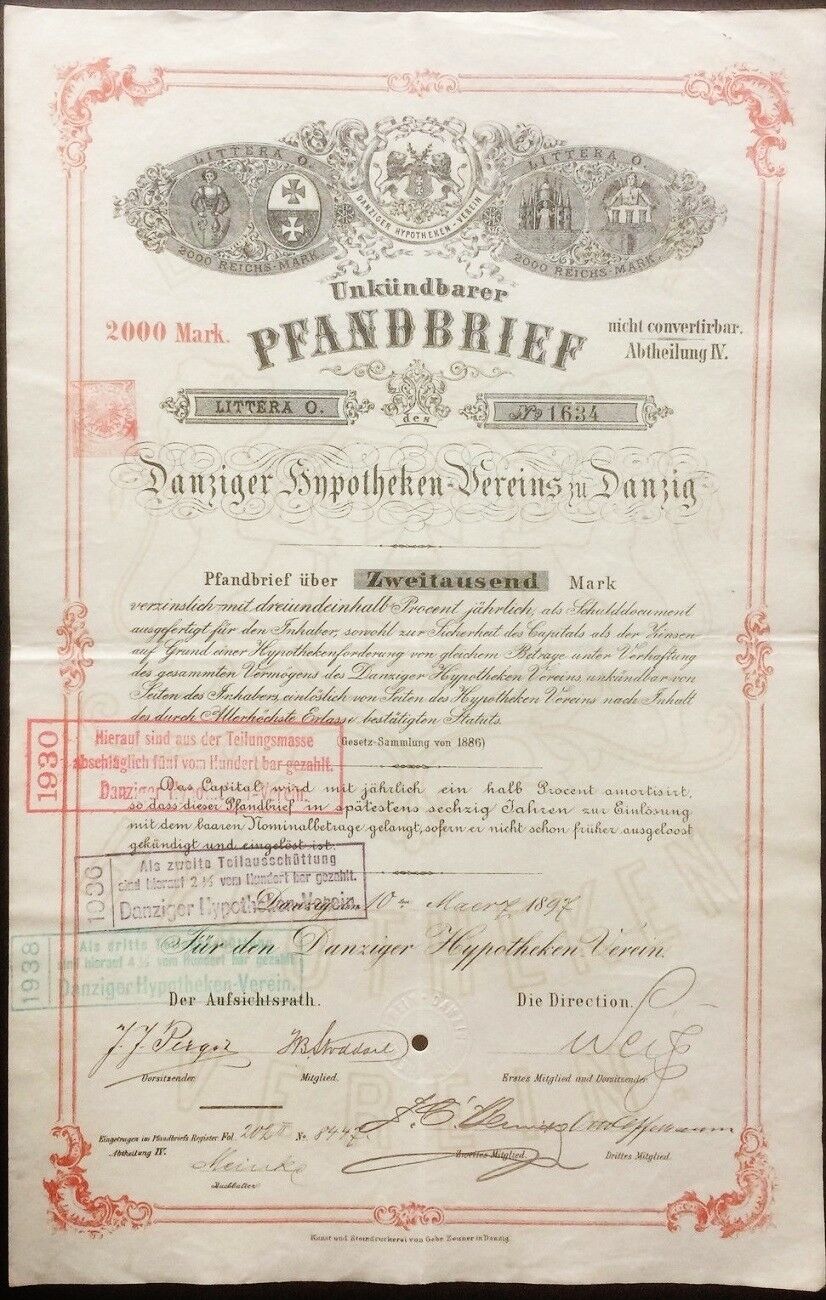 LITTERA O.
2000 REICHS-MARK.
DANZIGER HYPOTHEKEN-VEREIN
LITTERA O.
2000 REICHS-MARK.
Unkündbarer
2000 Mark.
PFANDBRIEF
nicht convertirbar.
Abtheilung IV.
LITTERA O.
des
No 1634
Danziger Hypotheken-Vereins zu Danzig
Pfandbrief über Zweitausend Mark
verzinslich mit dreiundeinhalb Procent jährlich, als Schulddocument
ausgefertigt für den Inhaber, sowohl zur Sicherheit des Capitals als der Zinsen
auf Grund einer Hypothekenforderung von gleichem Betrage unter Verhaftung
des gesammten Vermögens des Danziger Hypotheken Vereins, unkündbar von
Seiten des Inhabers, einlöslich von Seiten des Hypotheken Vereins nach Inhalt
des durch Allerhöchste Erlasse bestätigten Statuts.
(Gesetz-Sammlung von 1886)
1930
Hierauf sind aus der Teilungsmasse
abschläglich fünf vom Hundert bar gezahlt.
Danziger Verein.
Das Capital wird mit jährlich ein halb Procent amortisirt,
so dass dieser Pfandbrief in spätestens sechzig Jahren zur Einlösung
mit dem baaren Nominalbetrage gelangt, sofern er nicht schon früher ausgeloost
gekündigt und eingelöst ist.
1936
Als zweite Teilausschüttung
sind hierauf 2 ½ vom Hundert bar gezahlt.
Danziger Hypotheken-Verein.
Danzig, 10ten Maerz 1897
1938
Als dritte
sind hierauf 4 ½ vom Hundert bar gezahlt
Danziger Hypotheken-Verein.
Für den Danziger Hypotheken Verein.
Der Aufsichtsrath.
Die Direction.
Vorsitzender
Mitglied.
Erstes Mitglied und Vorsitzender
Eingetragen im Pfandbriefs Register Fol. 202 II No. 8447.
Abtheilung IV.
Zweites Mitglied.
Drittes Mitglied.
Buchhalter
Kunst und Steindruckerei von Gebr. Zeuner in Danzig.